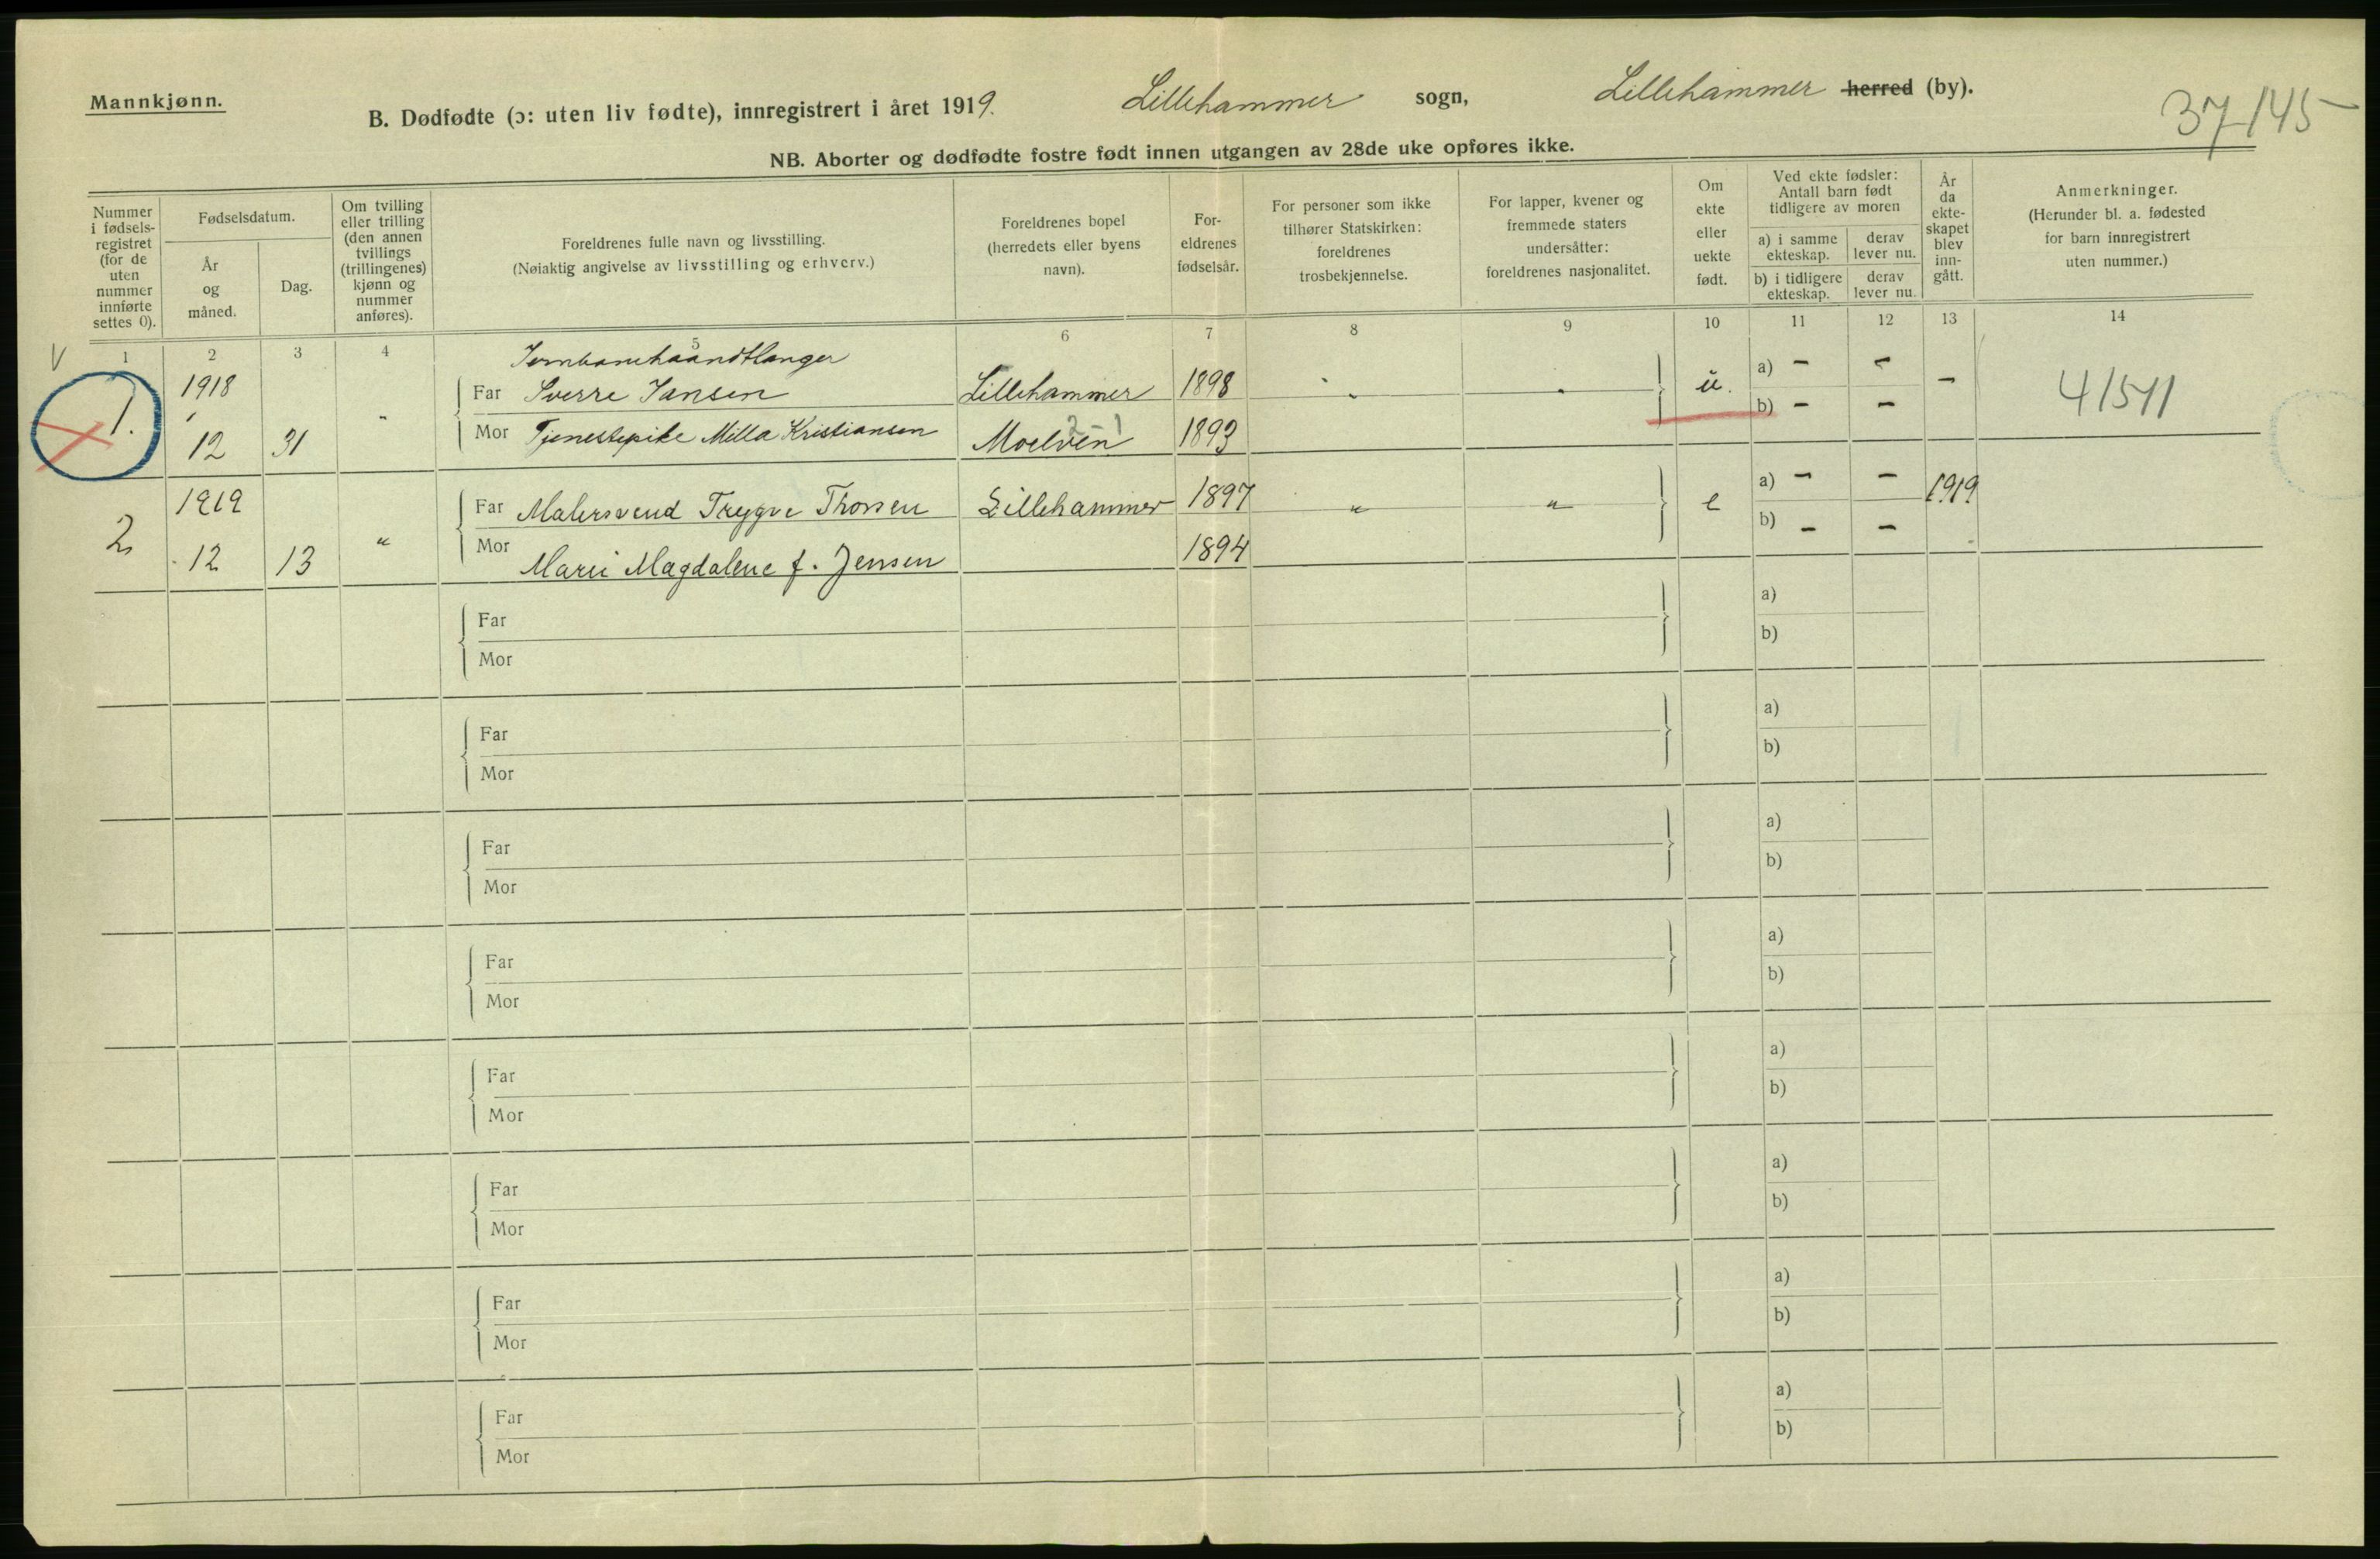 Mannkjønn.
B. Dødfødte (ɔ: uten liv fødte), innregistrert i året 1919. Lillehammer sogn, Lillehammer herred (by).
37/145
NB. Aborter og dødfødte fostre født innen utgangen av 28de uke opføres ikke.
Nummer i fødsels-registret (for de uten nummer innførte settes 0).
Fødselsdatum.
År og måned.
Dag.
Om tvilling eller trilling (den annen tvillings (trillingenes) kjønn og nummer anføres).
Foreldrenes fulle navn og livsstilling.
(Nøiaktig angivelse av livsstilling og erhverv.)
Foreldrenes bopel (herredets eller byens navn).
For-eldrenes fødselsår.
For personer som ikke tilhører Statskirken: foreldrenes trosbekjennelse.
For lapper, kvener og fremmede staters undersåtter: foreldrenes nasjonalitet.
Om ekte eller uekte født.
Ved ekte fødsler: Antall barn født tidligere av moren
a) i samme ekteskap.
derav lever nu.
b) i tidligere ekteskap.
derav lever nu.
År da ekte-skapet blev inn-gått.
Anmerkninger.
(Herunder bl. a. fødested for barn innregistrert uten nummer.)
1 2 3 4 5 6 7 8 9 10 11 12 13 14
V
Jernbanehaandtlanger
1. 1918 Far Sverre Jansen Lillehammer 1898 " " u. a) – – – 41511
12 31 " Mor Tjenestepike Milla Kristiansen Moelven 2-1 1893 b) – –
2 1919 Far Malersvend Trygve Thorsen Lillehammer 1897 " " e a) – – 1919
12 13 " Mor Marie Magdalene f. Jensen 1894 b) – –
Far a)
Mor b)
Far a)
Mor b)
Far a)
Mor b)
Far a)
Mor b)
Far a)
Mor b)
Far a)
Mor b)
Far a)
Mor b)
Far a)
Mor b)